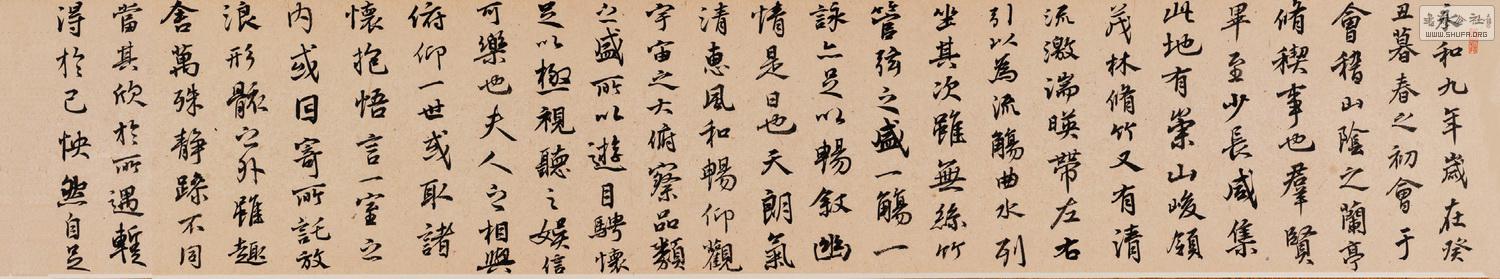 永和九年歲在癸
丑暮春之初會于
會稽山陰之蘭亭
脩稧事也羣賢
畢至少長咸集
此地有崇山峻領
茂林脩竹又有清
流激湍暎帶左右
引以為流觴曲水列
坐其次雖無絲竹
管弦之盛一觴一
詠亦足以暢敘幽
情是日也天朗氣
清惠風和暢仰觀
宇宙之大俯察品類
之盛所以遊目騁懷
足以極視聽之娛信
可樂也夫人之相與
俯仰一世或取諸
懷抱悟言一室之
內或因寄所託放
浪形骸之外雖趣
舍萬殊靜躁不同
當其欣於所遇蹔
得於己怏然自足
www.SHUFA.ORG